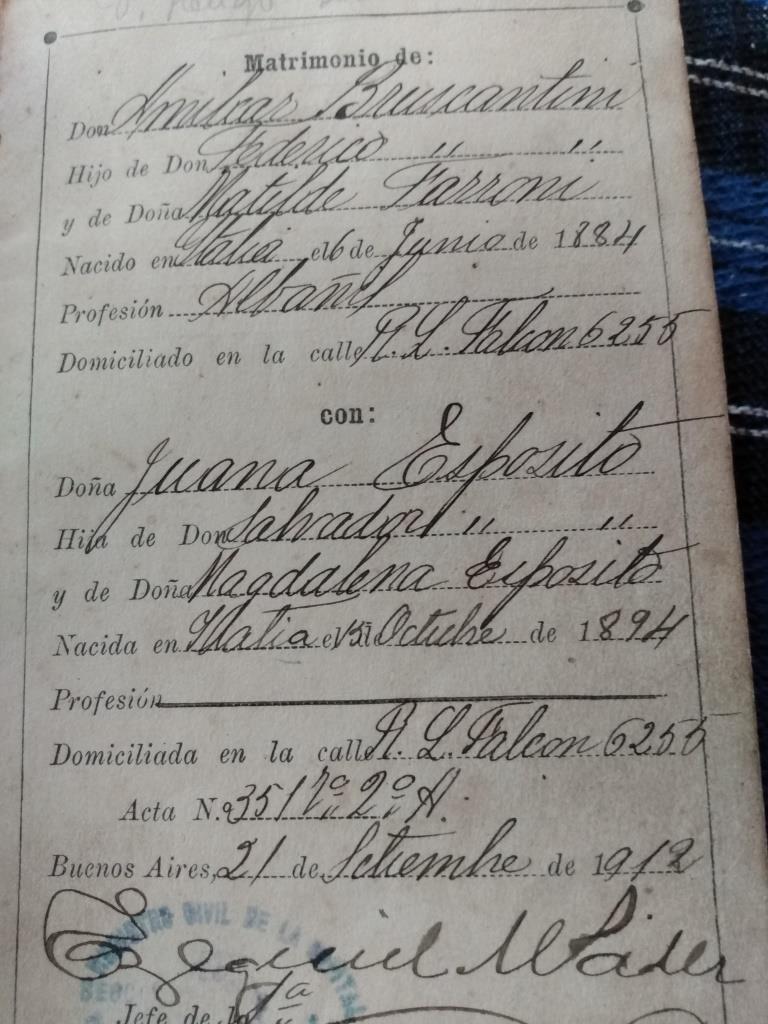 Matrimonio de:
Don Amilcar Bruscantini
Hijo de Don Federico " "
y de Doña Matilde Farroni
Nacido en Italia el 6 de Junio de 1884
Profesión Albañil
Domiciliado en la calle R. L. Falcon 6255
con:
Doña Juana Esposito
Hija de Don Salvador " "
y de Doña Magdalena Esposito
Nacida en Italia el 15 de Octubre de 1894
Profesión
Domiciliada en la calle R. L. Falcon 6255
Acta N.º 351 2º A.
Buenos Aires, 21 de Setiembre de 1912
REGISTRO CIVIL DE LA CAPITAL
Ezequiel
Jefe de la 1ª